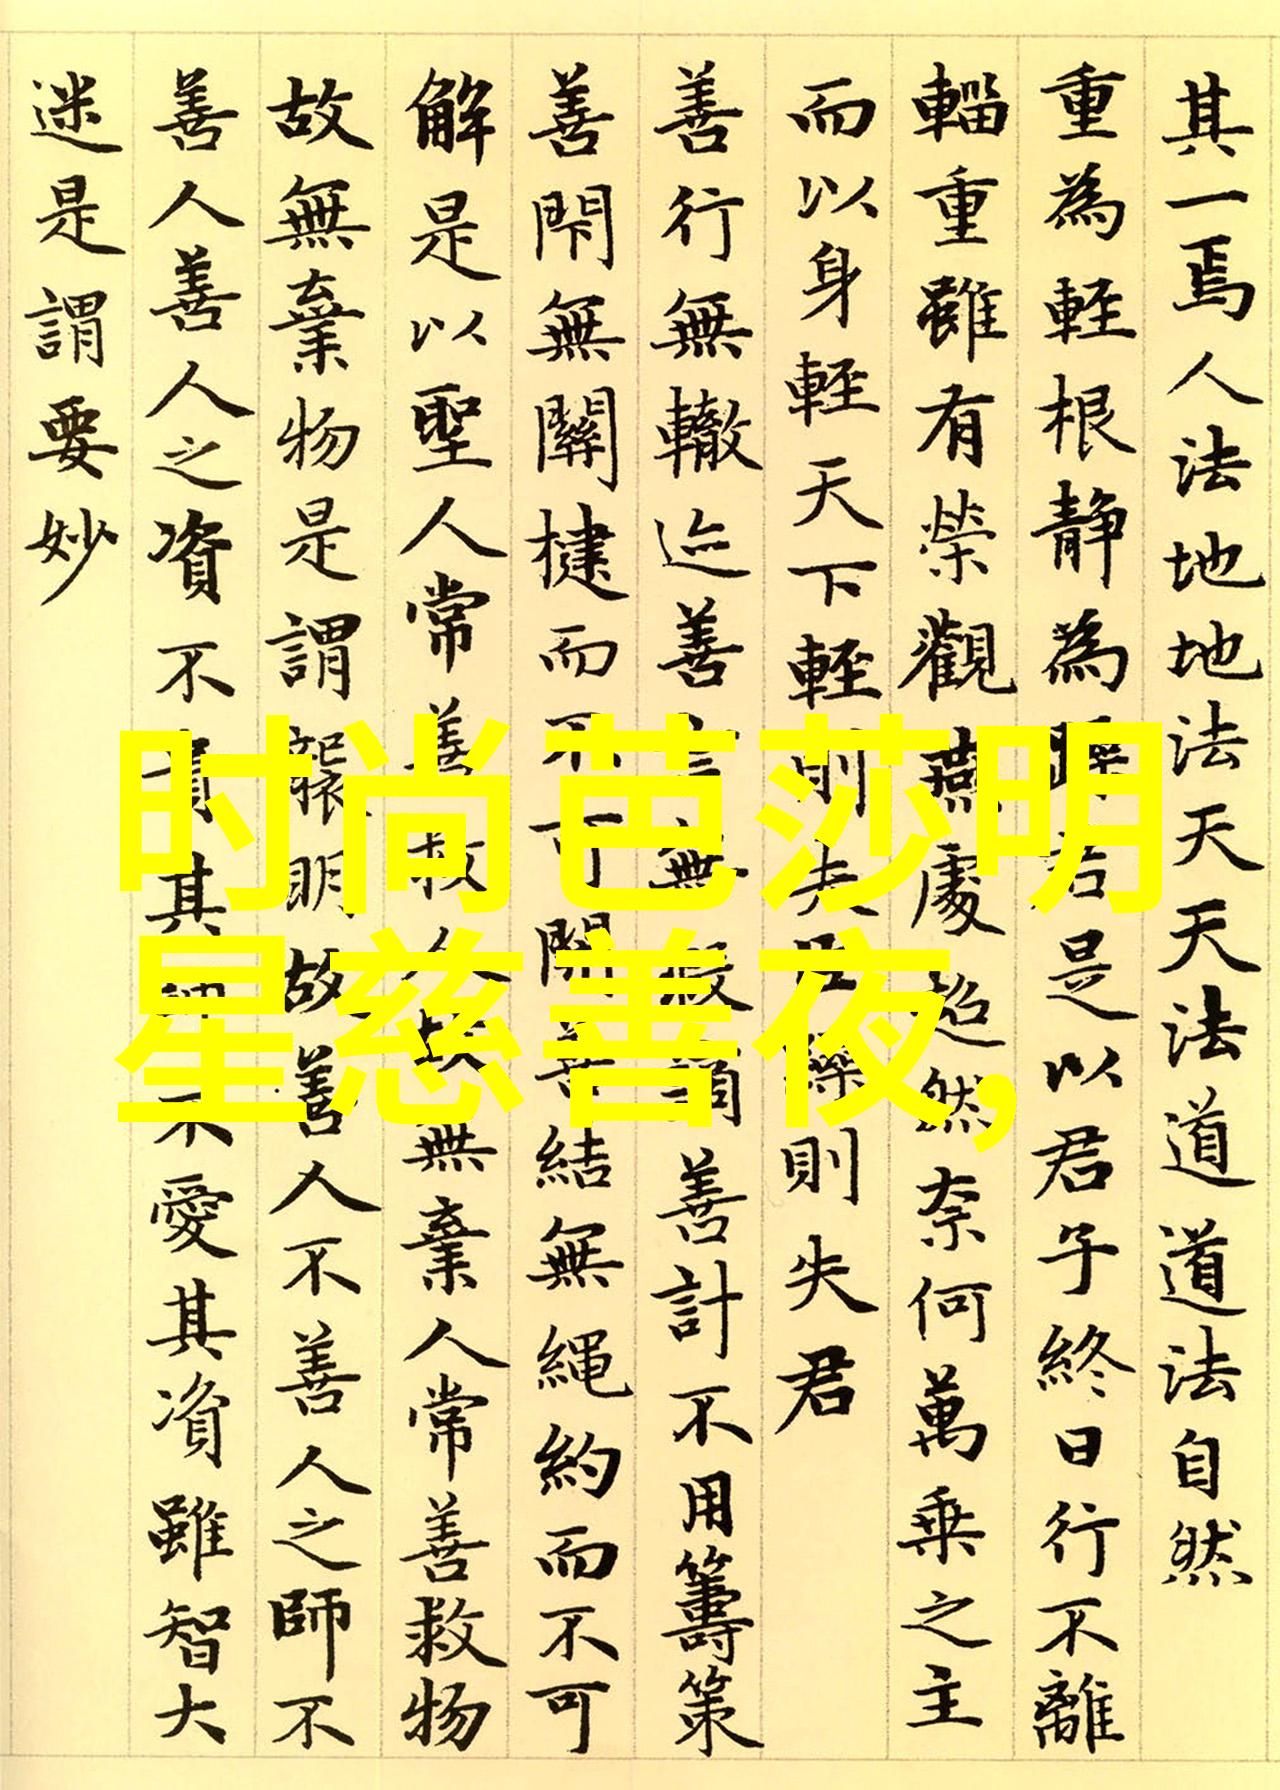 其一焉人法地地法天天法道道法自然
重為輕根靜為躁君是以君子終日行不離
輜重雖有榮觀燕處超然奈何萬乘之主
而以身輕天下輕則失臣躁則失君
善行無轍迹善言無瑕讁善計不用籌策
善閇無關楗而不可開善結無繩約而不可
解是以聖人常善救人故無棄人常善救物
故無棄物是謂襲明故善人不善人之師不
善人善人之資不貴其師不愛其資雖智大
迷是謂要妙
时尚芭莎明
星慈善夜,